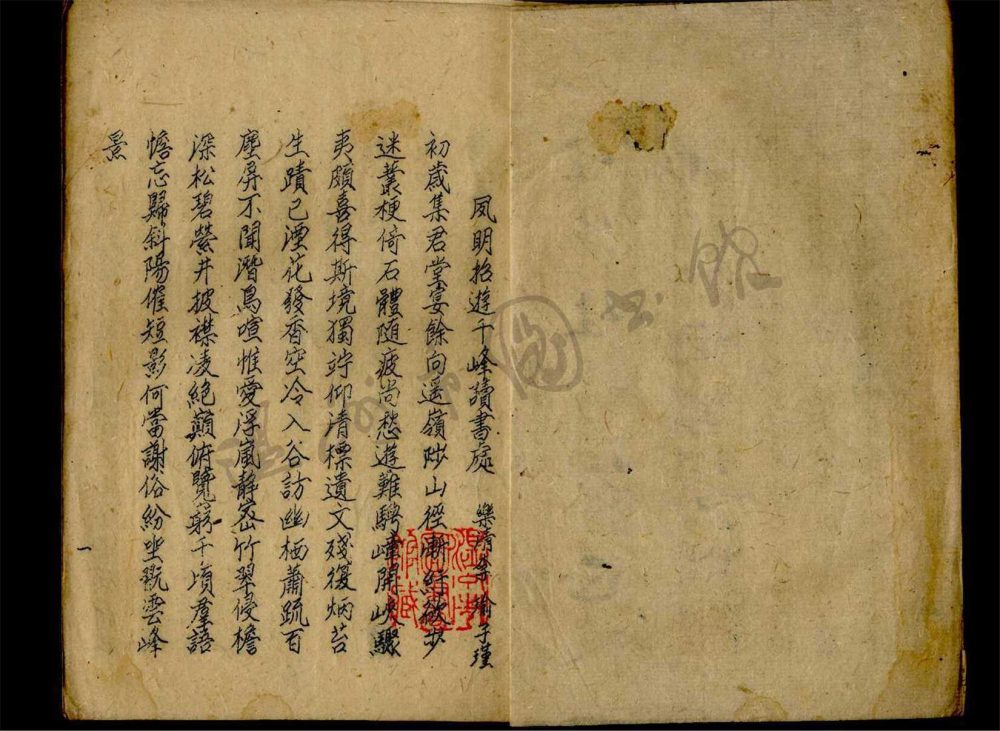 夙明招遊千峰讀書處 樂清 子瑾
初歲集君堂宴餘向遥嶺陟山徑漸紆欲步
迷叢梗倚石體随疲尚愁遊難騁峰開峡驟
夷頗喜得斯境獨竚仰清標遺文殘復炳苔
生蹟已湮花發香空冷入谷訪幽栖蕭疏百
塵屏不聞潛鳥喧惟愛浮嵐静密竹翠侵檐
深松碧縈井披襟凌絶巔俯覽窮千頃羣語
憺忘歸斜陽催短影何當謝俗紛坐翫雲峰
景